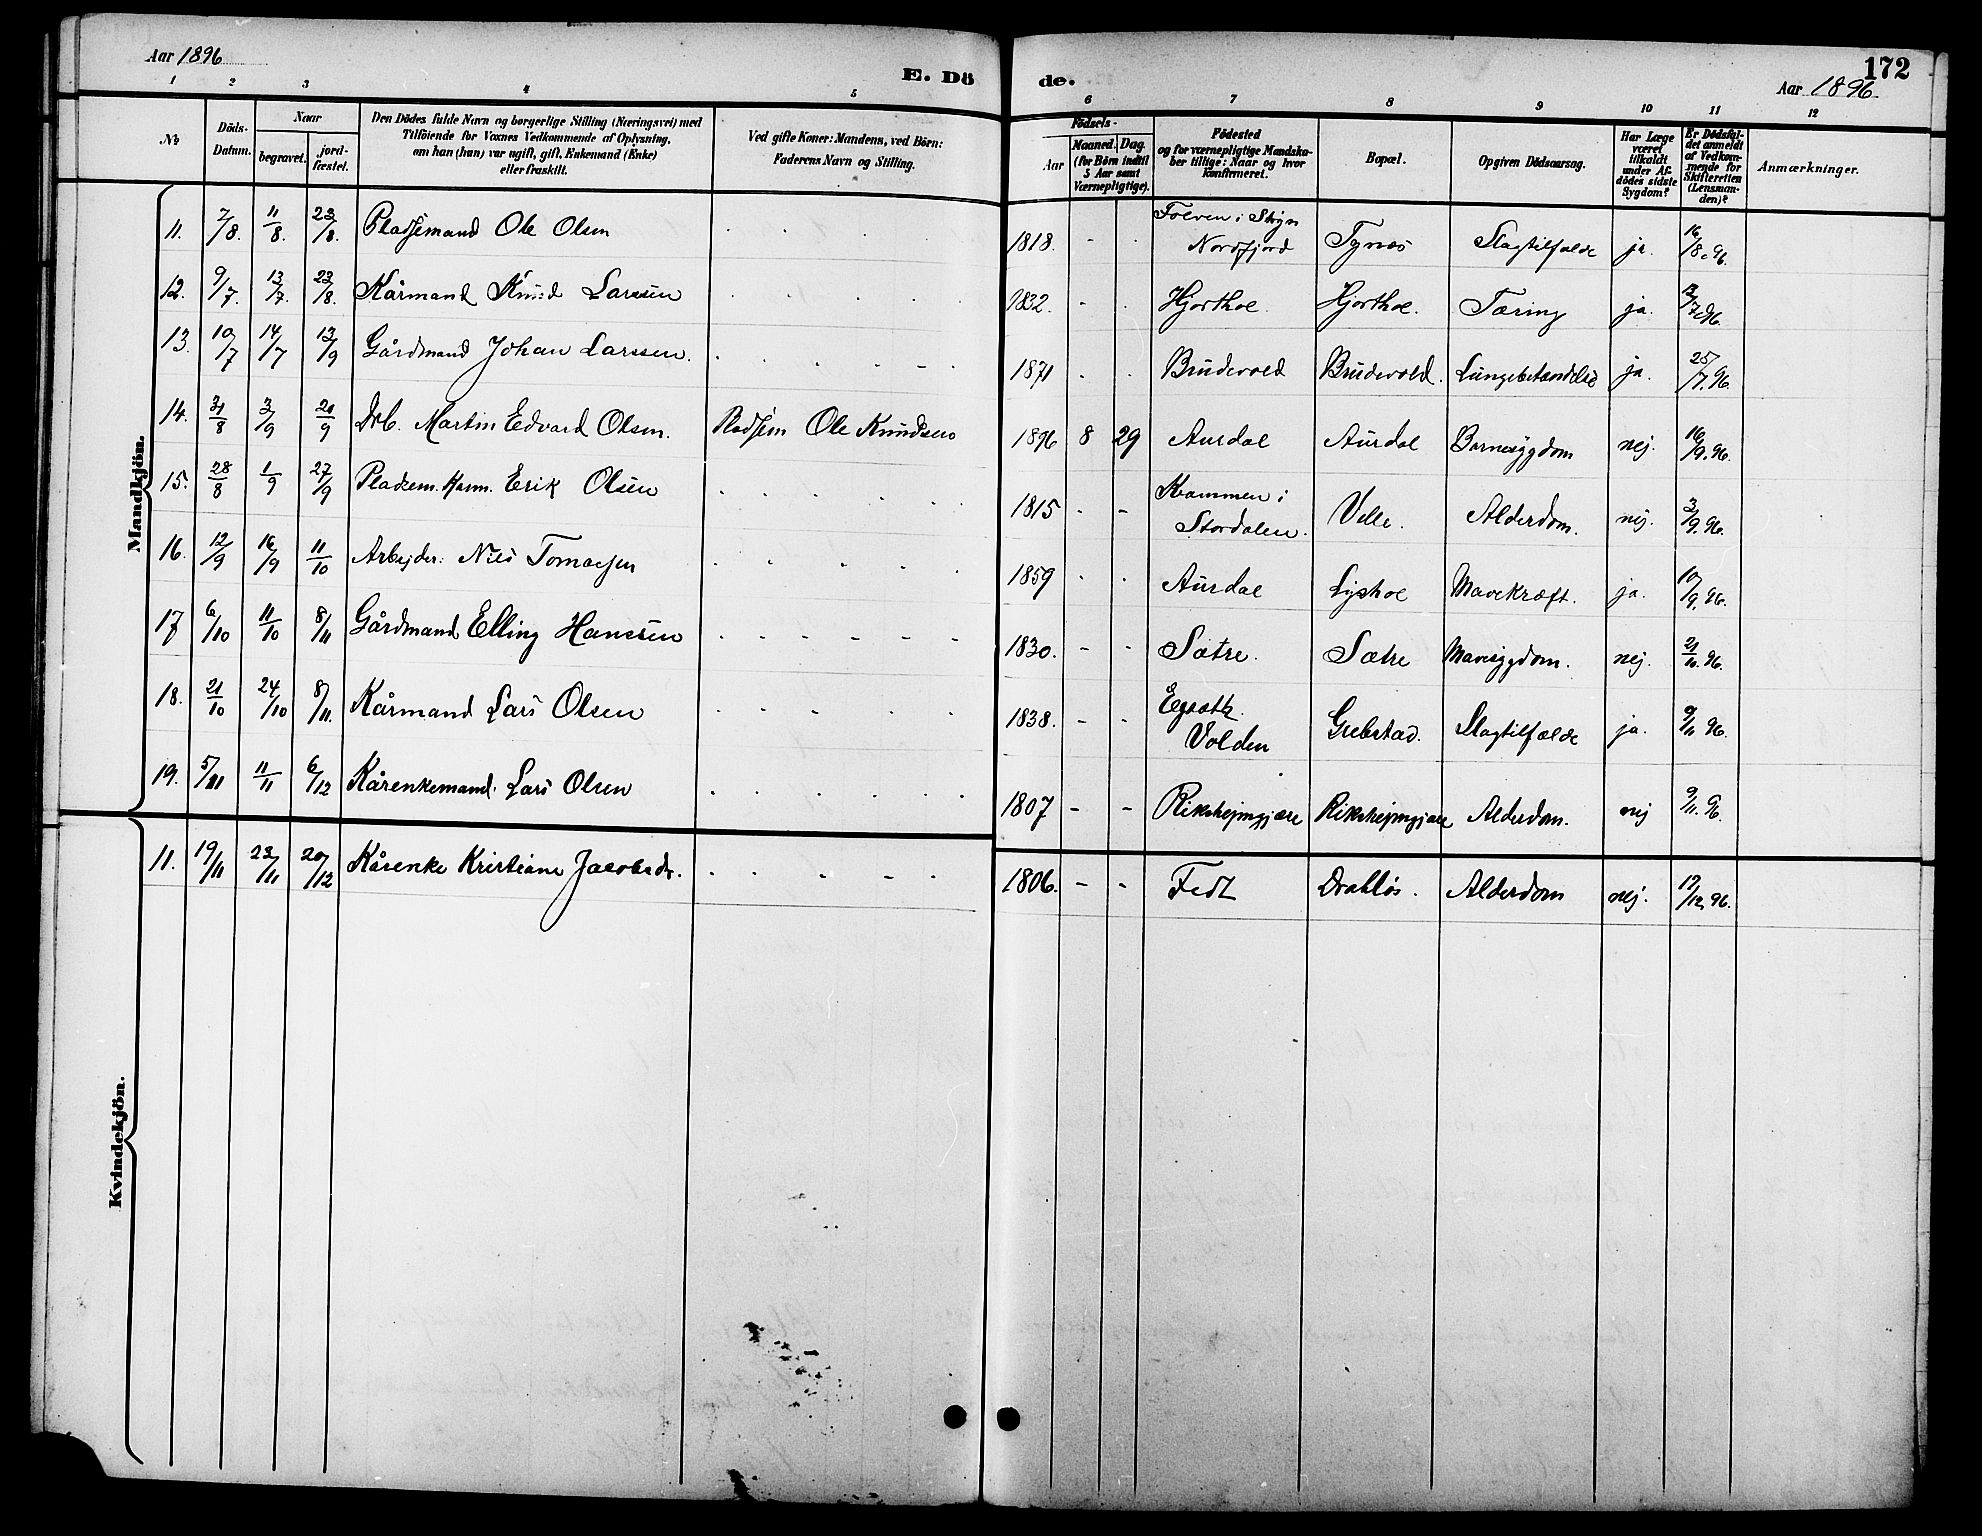 Aar 1896
E. Dö
de.
172
Aar 1896.
1 2 3 4 5 6 7 8 9 10 11 12
No
Döds-
Datum.
Naar
begravet.
jord-
fæstet.
Den Dödes fulde Navn og borgerlige Stilling (Næringsvei) med
Tilföiende for Voxnes Vedkommende af Oplysning,
om han (hun) var ugift, gift, Enkemand (Enke)
eller fraskilt.
Ved gifte Koner: Mandens, ved Börn:
Faderens Navn og Stilling.
Födsels-
Aar
Maaned. Dag.
(for Börn indtil
5 Aar samt
Værnepligtige).
Födested
og for værnepligtige Mandska-
ber tillige: Naar og hvor
konfirmeret.
Bopæl.
Opgiven Dödsaarsag.
Har Læge
været
tilkaldt
under Af-
dödes sidste
Sygdom?
Er Dödsfal-
det anmeldt
af Vedkom-
mende for
Skifteretten
(Lensman-
den)?
Anmærkninger.
Mandkjön.
11. 7/8. 11/8. 23/8. Pladsemand Ole Olsen 1818. Folven i Stryn Nordfjord Tynes Slagtilfælde ja. 16/8.96.
12. 9/7. 13/7. 23/8. Kårmand Knud Larssen 1832. Hjorthol. Hjorthol. Tæring ja. 96.
13. 10/7 14/7 13/9 Gårdmand Johan Larssen. 1871 Brudevold Brudevold. Lungebetændelse ja. 25/7.96.
14. 31/8 3/9 21/9 Drb. Martin Edvard Olsen. Pladsem Ole Knudsens 1896 8 29 Aurdal Aurdal Barnesygdom nej. 16/9.96.
15. 28/8 1/9 27/9 Pladsem. Kaarm. Erik Olsen 1815 i Stordalen. Velle. Alderdom. nej. 3/9.96.
16. 12/9 16/9 11/10 Arbejder: Nils Tomassen 1859 Aurdal Lyshol Mavekræft. ja. 19/9.96.
17 6/10 11/10 8/11 Gårdmand Elling Hanssen 1830. Sætre. Sætre Mavesygdom. nej. 21/10.96.
18. 21/10 24/10 8/11. Kårmand Lars Olsen 1838. Egsæth Volden Grebstad. Slagtilfælde ja. 9/11 96.
19. 5/11 11/11 6/12 Kårenkemand. Lars Olsen 1807 Rikshejmgjære Rikshejmgjære Alderdom. nej 9/11.96.
Kvindekjön.
11. 19/11 23/11 20/12 Kårenke Kristiane Jacobsdr. 1806. Fedt Drabløs. Alderdom nej. 19/12.96.